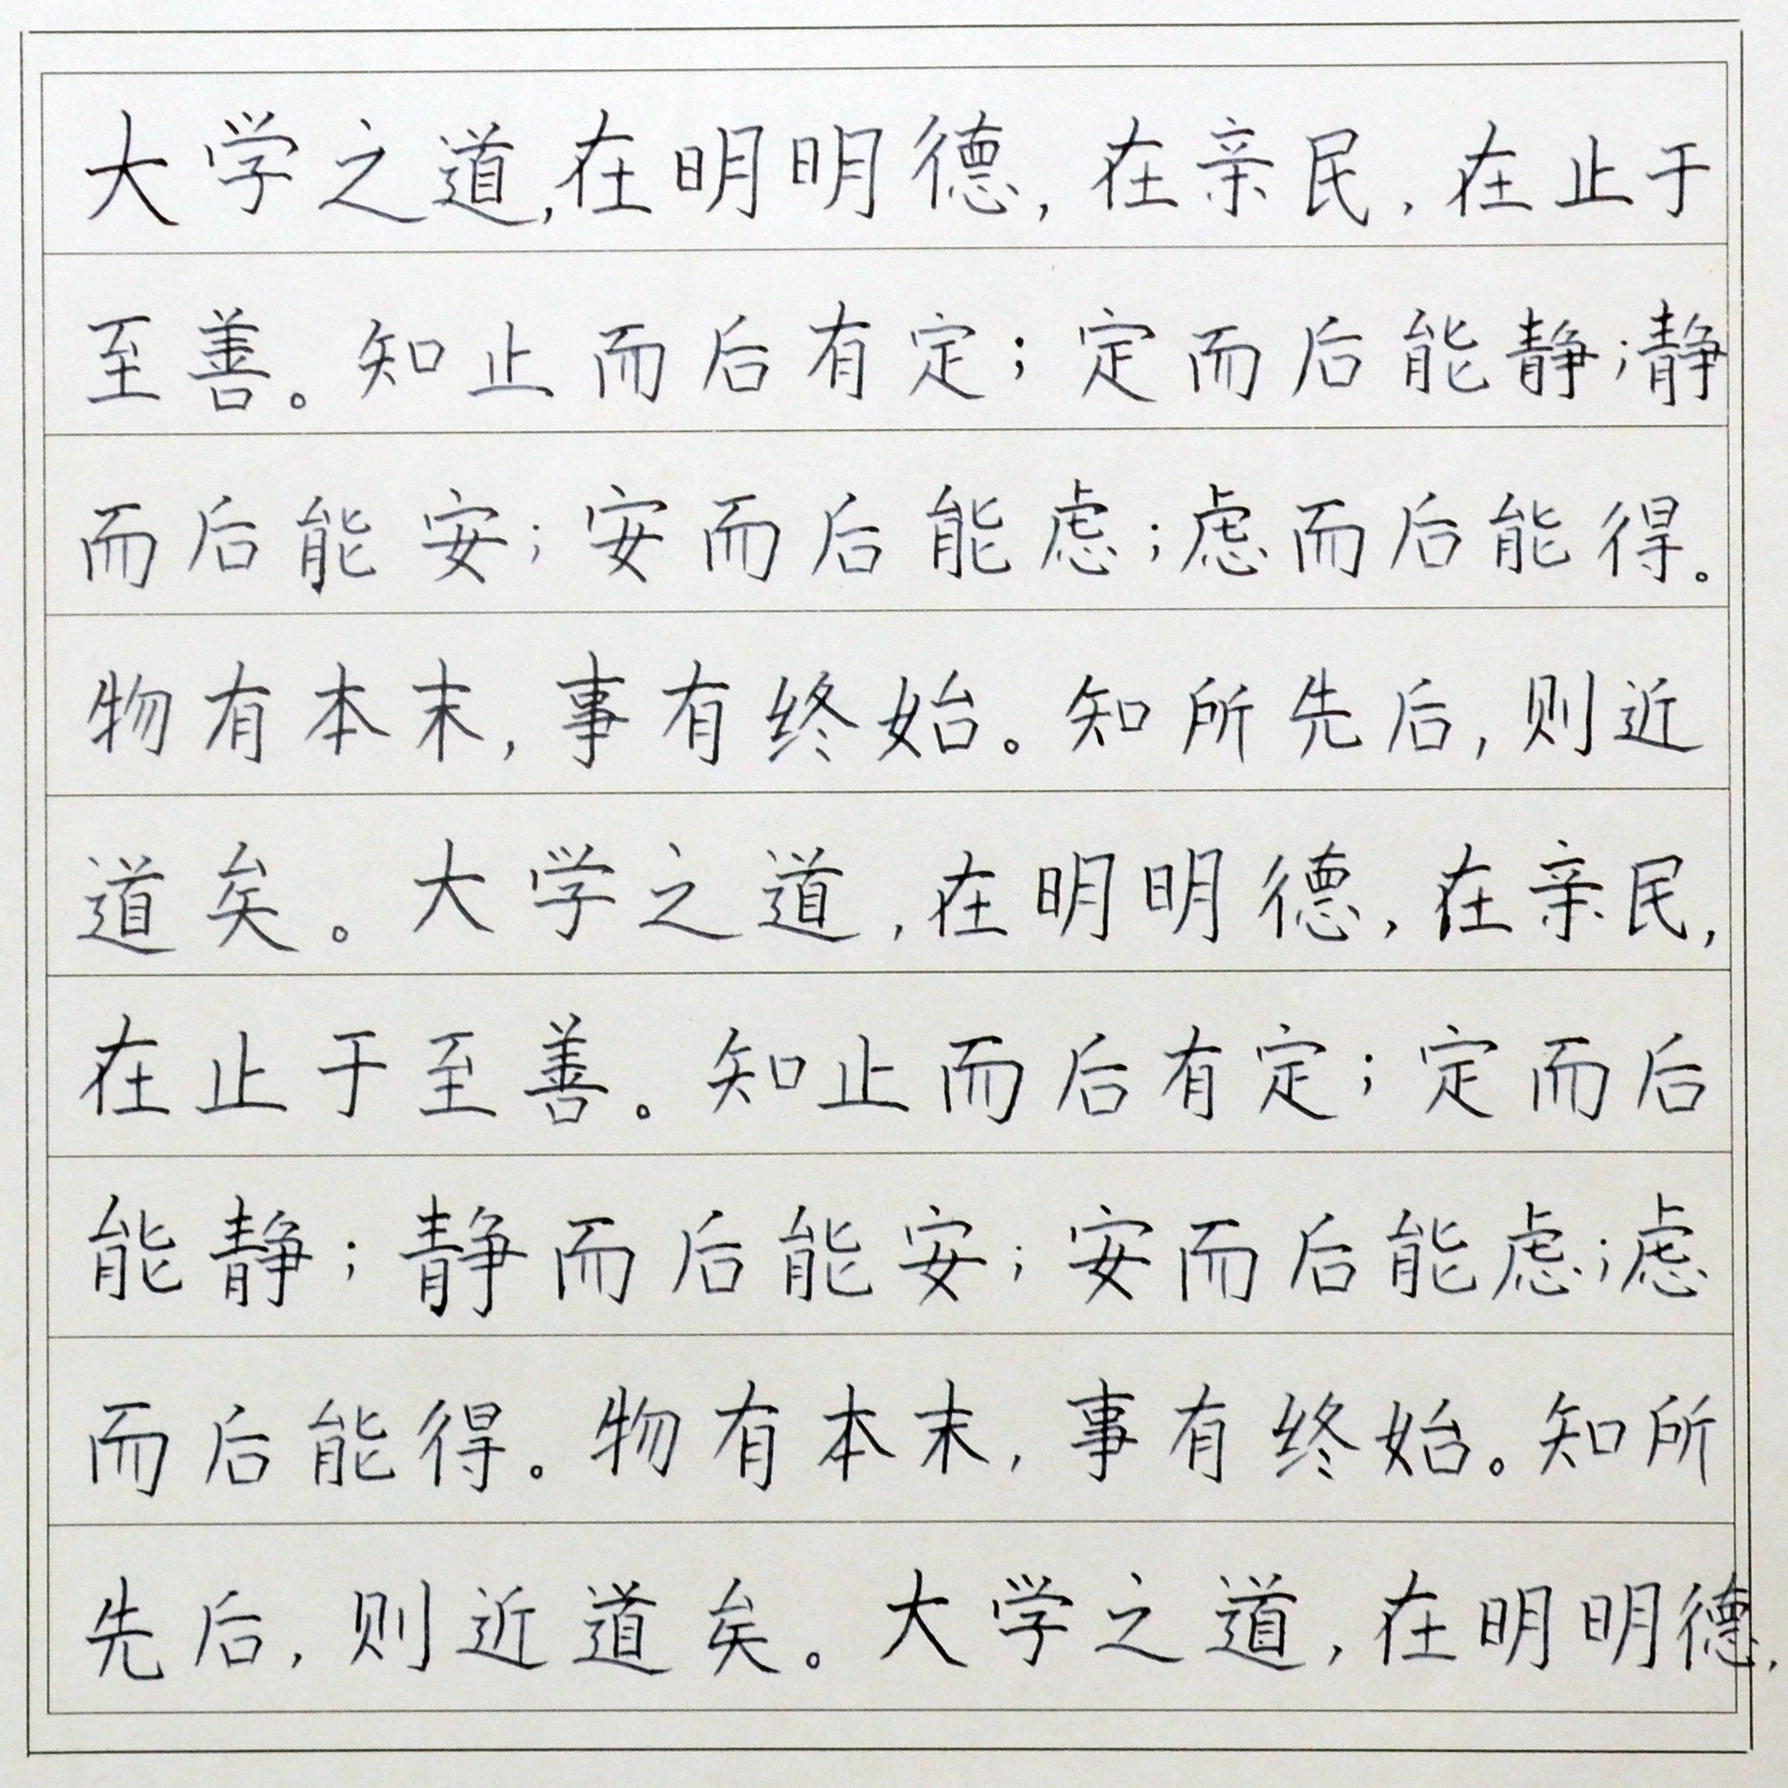 大学之道,在明明德,在亲民,在止于
至善。知止而后有定;定而后能静;静
而后能安;安而后能虑;虑而后能得。
物有本末,事有终始。知所先后,则近
道矣。大学之道,在明明德,在亲民,
在止于至善。知止而后有定;定而后
能静;静而后能安;安而后能虑;虑
而后能得。物有本末,事有终始。知所
先后,则近道矣。大学之道,在明明德,